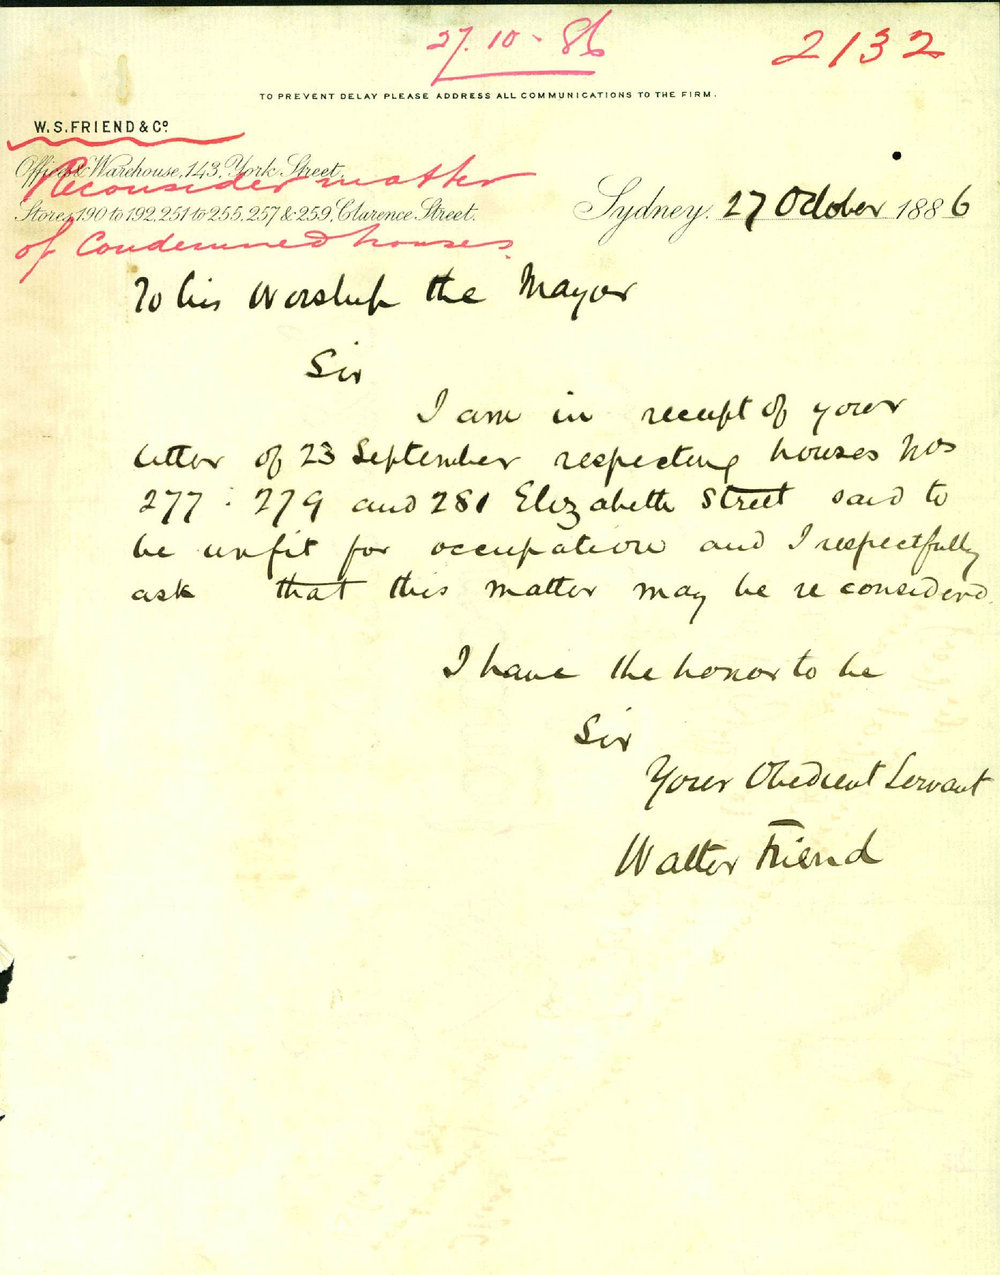 27.10-86
2132
TO PREVENT DELAY PLEASE ADDRESS ALL COMMUNICATIONS TO THE FIRM.
W.S. FRIEND & Co.
Office & Warehouse, 143, York Street.
Reconsider matter
Stores, 190 to 192, 251 to 255, 257 & 259, Clarence Street.
of Condemned houses.
Sydney. 27 October 1886
To his Worship the Mayor
Sir
I am in receipt of your
letter of 23 September respecting houses Nos
277 : 279 and 281 Elizabeth Street said to
be unfit for occupation and I respectfully
ask that this matter may be reconsidered.
I have the honor to be
Sir
Your Obedient Servant
Walter Friend